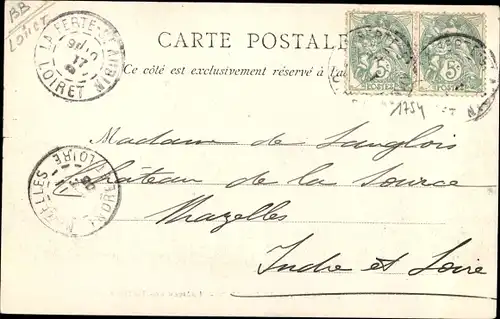 BB
LOIRET
LA FERTE-ST-AUBIN
LOIRET
CARTE POSTALE
Ce côté est exclusivement réservé à l'a
5c 5c
POSTES POSTES
1754
Madame de Langlois
Château de la Source
Mazelles
Indre et Loire
NAZELLES
INDRE ET LOIRE